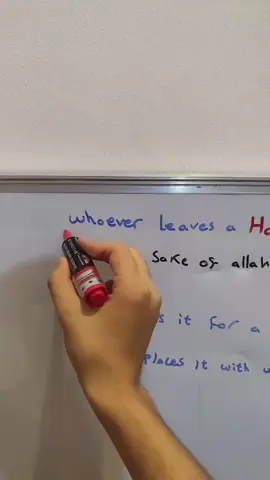 whoever leaves a Ha
sake of allah
s it for a
places it with